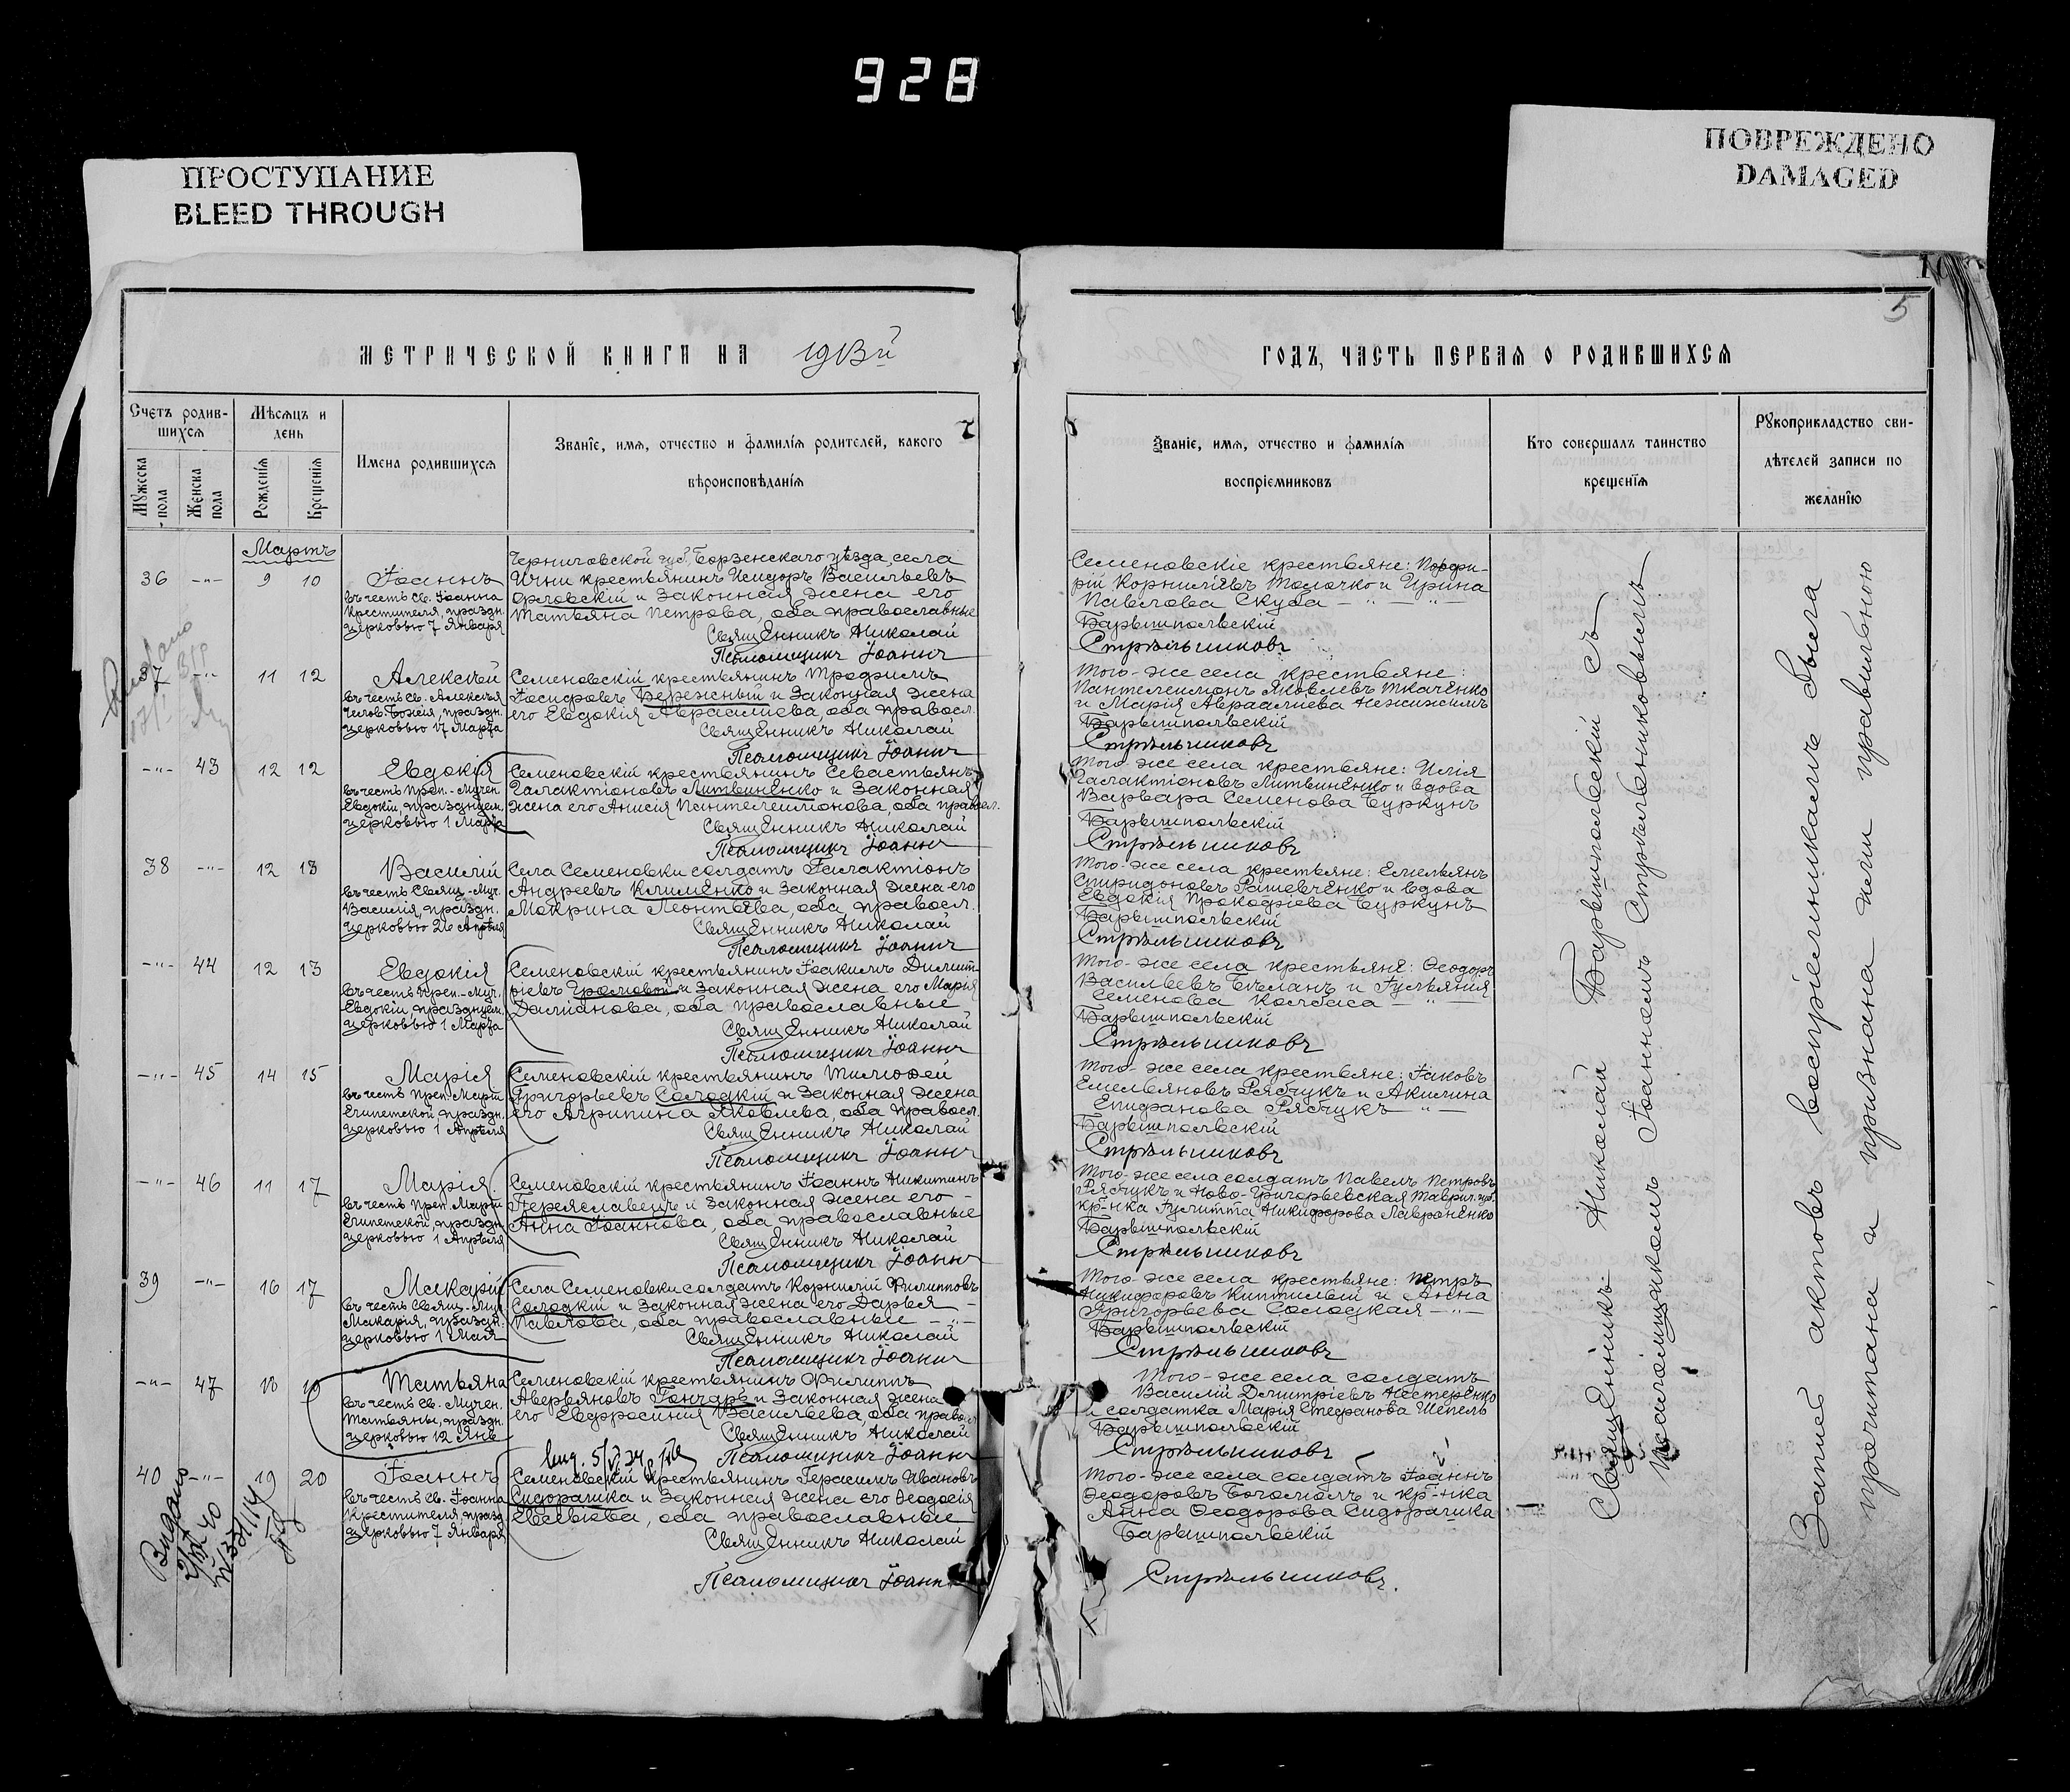 928
ПРОСТУПАНИЕ
BLEED THROUGH
ПОВРЕЖДЕНО
DAMAGED
5
МЕТРИЧЕСКОЙ КНИГИ НА 1913й
ГОДЪ, ЧАСТЬ ПЕРВАЯ О РОДИВШИХСЯ
Счетъ родив-
шихся
Мѣсяцъ и
день
Мужеска
пола
Женска
пола
Рожденія
Крещенія
Имена родившихся
Званіе, имя, отчество и фамилія родителей, какого
вѣроисповѣданія
Званіе, имя, отчество и фамилія
воспріемниковъ
Кто совершалъ таинство
крещенія
Рукоприкладство сви-
дѣтелей записи по
желанію
Мартъ
36 -"- 9 10
Іоаннъ
въ честь Св. Іоанна
Крестителя, праздн.
церковью 7 Января
Черниговской губ. Борзенскаго уѣзда, села
Ични крестьянинъ Исидоръ Васильевъ
Орловскій и законная жена его
Татьяна Петрова, оба православные
Священникъ Николай
Псаломщикъ Іоаннъ
Семеновскіе крестьяне: Порфи-
рій Корниліевъ Толочко и Ирина
Павлова Скуба
Барышпольскій
Стрѣльниковъ
37 -"- 11 12
Алексѣй
въ честь Св. Алексѣя
Челов. Божія, праздн.
церковью 17 Марта
Семеновскій крестьянинъ Трофимъ
Іосифовъ Бережный и законная жена
его Евдокія Авраамиева, оба правосл.
Священникъ Николай
Псаломщикъ Іоаннъ
Того-же села крестьяне:
Пантелеимонъ Яковлевъ Ткаченко
и Марія Авраамиева Нежижимъ
Барышпольскій
Стрѣльниковъ
-"- 43 12 12
Евдокія
въ честь Преп.-Мучен.
Евдокіи, празднуем.
церковью 1 Марта
Семеновскій крестьянинъ Севастьянъ
Галактіоновъ Литвиненко и законная
жена его Анисія Пантелеимонова, оба правосл.
Священникъ Николай
Псаломщикъ Іоаннъ
Того-же села крестьяне: Илія
Галактіоновъ Литвиненко и вдова
Варвара Семенова Буркунъ
Барышпольскій
Стрѣльниковъ
38 -"- 12 13
Василій
въ честь Свящ.-Муч.
Василія, праздн.
церковью 26 Апрѣля
Села Семеновки солдатъ Галактіонъ
Андреевъ Клименко и законная жена его
Макрина Леонтьева, оба правосл.
Священникъ Николай
Псаломщикъ Іоаннъ
Того-же села крестьяне: Емельянъ
Спиридоновъ Рашевченко и вдова
Евдокія Прокофіева Буркунъ
Барышпольскій
Стрѣльниковъ
-"- 44 12 13
Евдокія
въ честь Преп.-Муч.
Евдокіи, празднуем.
церковью 1 Марта
Семеновскій крестьянинъ Іоакимъ Димит-
ріевъ Громовой и законная жена его Марія
Даміанова, оба православные
Священникъ Николай
Псаломщикъ Іоаннъ
Того-же села крестьяне: Ѳеодоръ
Васильевъ Бѣланъ и Гульянія
Семенова Колбаса
Барышпольскій
Стрѣльниковъ
-"- 45 14 15
Марія
въ честь Преп. Маріи
Египетской, праздн.
церковью 1 Апрѣля
Семеновскій крестьянинъ Тимофей
Григорьевъ Солодкій и законная жена
его Агрипина Яковлева, оба правосл.
Священникъ Николай
Псаломщикъ Іоаннъ
Того-же села крестьяне: Іаковъ
Емельяновъ Рябчукъ и Акилина
Епифанова Рябчукъ
Барышпольскій
Стрѣльниковъ
-"- 46 11 17
Марія
въ честь Преп. Маріи
Египетской, праздн.
церковью 1 Апрѣля
Семеновскій крестьянинъ Іоаннъ Никитинъ
Переяславецъ и законная жена его
Анна Іоаннова, оба православные
Священникъ Николай
Псаломщикъ Іоаннъ
Того-же села солдатъ Павелъ Петровъ
Рябчукъ и Ново-Григорьевская Таврич. губ.
кр-нка Гулитта Никифорова Лавроненко
Барышпольскій
Стрѣльниковъ
39 -"- 16 17
Макарій
въ честь Свящ.-Муч.
Макарія, праздн.
церковью 1 Мая
Села Семеновки солдатъ Корнилій Филипповъ
Солодкій и законная жена его Дарья
Павлова, оба православные
Священникъ Николай
Псаломщикъ Іоаннъ
Того-же села крестьяне: Петръ
Никифоровъ Киптилый и Анна
Григорьева Солодкая
Барышпольскій
Стрѣльниковъ
-"- 47 18 19
Татьяна
въ честь Св. Мучен.
Татьяны, праздн.
церковью 12 Янв.
Семеновскій крестьянинъ Филиппъ
Аверьяновъ Гончаръ и законная жена
его Евфросинія Васильева, оба правосл.
Священникъ Николай
Псаломщикъ Іоаннъ
Того-же села солдатъ
Василій Димитріевъ Нестеренко
и солдатка Марія Стефанова Шепель
Барышпольскій
Стрѣльниковъ
40 -"- 19 20
Іоаннъ
въ честь Св. Іоанна
Крестителя, празд.
церковью 7 Января
Семеновскій крестьянинъ Герасимъ Ивановъ
Сидорашка и законная жена его Ѳеодосія
Евсѣева, оба православные
Священникъ Николай
Псаломщикъ Іоаннъ
Того-же села солдатъ Іоаннъ
Ѳеодоровъ Богомолъ и кр-нка
Анна Ѳеодорова Сидорашка
Барышпольскій
Стрѣльниковъ.
Видано
Священникъ Николай Барышпольскій съ
Псаломщикомъ Іоанномъ Стрѣльниковымъ
Запись актовъ воспріемникамъ была
прочитана и признана ими правильною